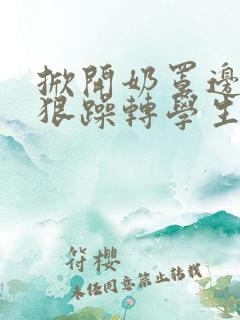 掀開奶罩邊
狠躁轉學生
符櫻
未经同意禁止转载